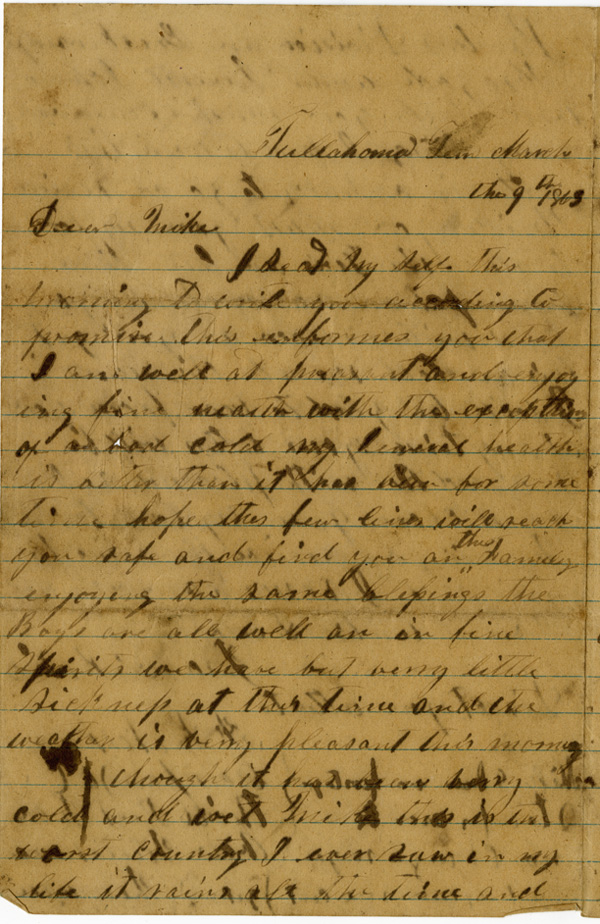 Tullahoma Ten March
the 9th 1863
Dear Mike
I seat my self this
morning to write you according to
promise this informes you that
I am well at present and enjoy
ing fine health with the exception
of a bad cold my general health
is better than it has been for some
time hope thes few lines will reach
you safe and find you an the Family
enjoying the same blessings the
Boys are all well an in fine
Spirits we have but verry little
Sickness at this time and the
weather is very pleasant this morning
though it has been very
cold and wet Mike this is the
worst country I ever saw in my
life it rains all the time and